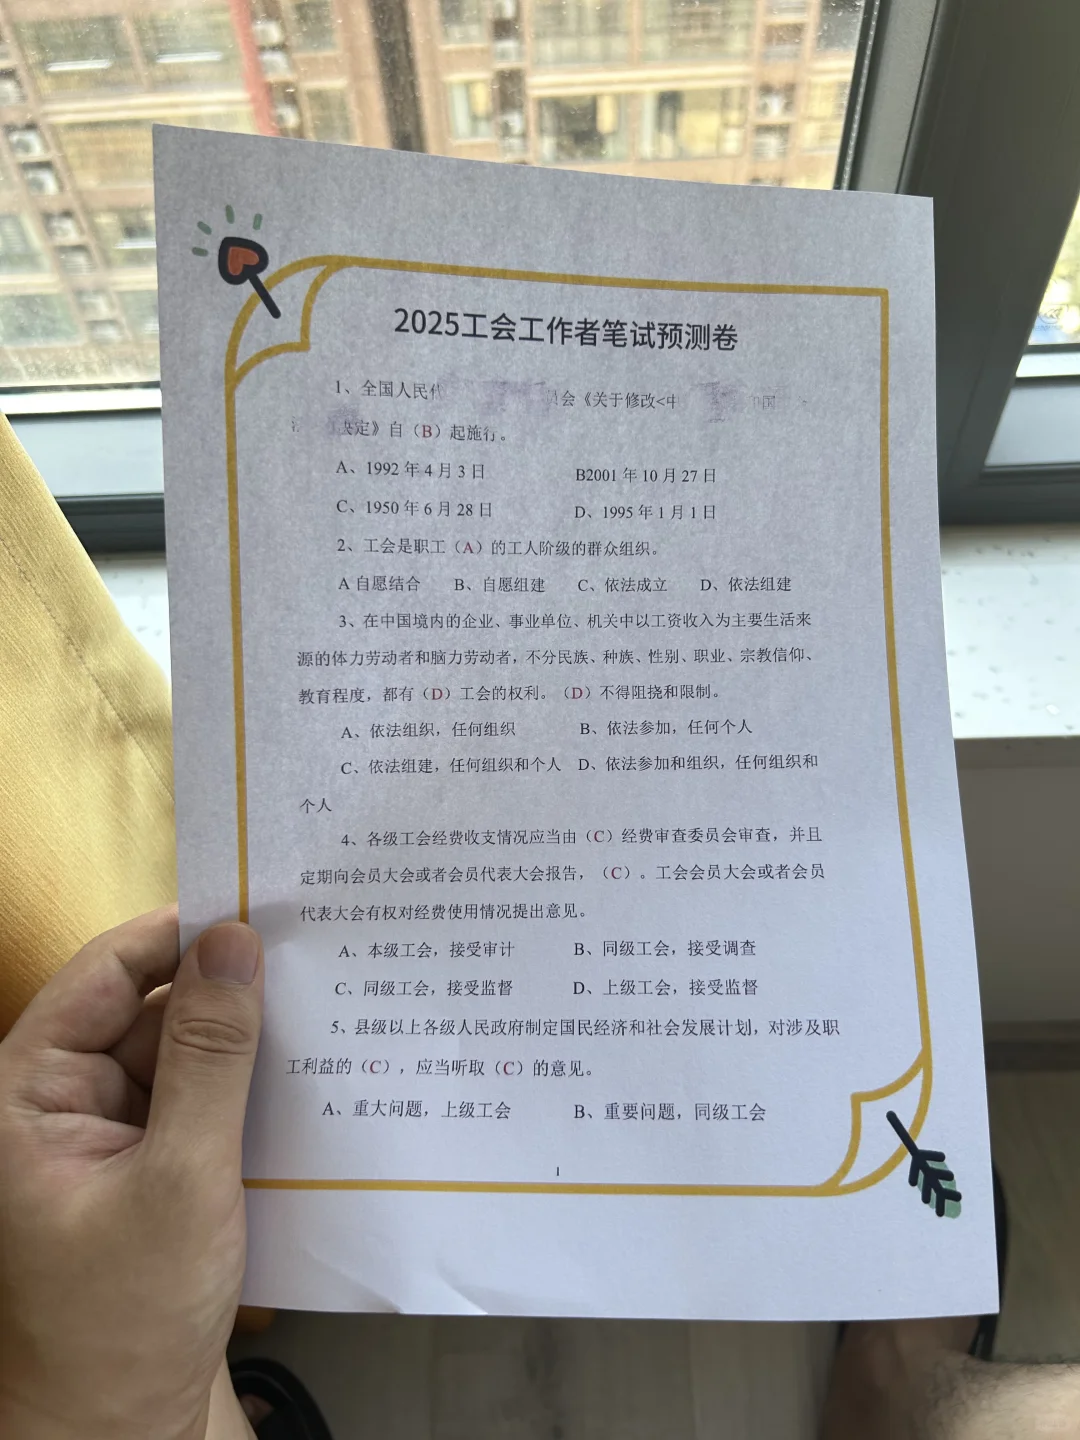 2025工会工作者笔试预测卷
1、全国人民代 员会《关于修改<中 中国
决定》自（B）起施行。
A、1992 年 4 月 3 日 B2001 年 10 月 27 日
C、1950 年 6 月 28 日 D、1995 年 1 月 1 日
2、工会是职工（A）的工人阶级的群众组织。
A 自愿结合 B、自愿组建 C、依法成立 D、依法组建
3、在中国境内的企业、事业单位、机关中以工资收入为主要生活来
源的体力劳动者和脑力劳动者，不分民族、种族、性别、职业、宗教信仰、
教育程度，都有（D）工会的权利。（D）不得阻挠和限制。
A、依法组织，任何组织 B、依法参加，任何个人
C、依法组建，任何组织和个人 D、依法参加和组织，任何组织和
个人
4、各级工会经费收支情况应当由（C）经费审查委员会审查，并且
定期向会员大会或者会员代表大会报告，（C）。工会会员大会或者会员
代表大会有权对经费使用情况提出意见。
A、本级工会，接受审计 B、同级工会，接受调查
C、同级工会，接受监督 D、上级工会，接受监督
5、县级以上各级人民政府制定国民经济和社会发展计划，对涉及职
工利益的（C），应当听取（C）的意见。
A、重大问题，上级工会 B、重要问题，同级工会
1